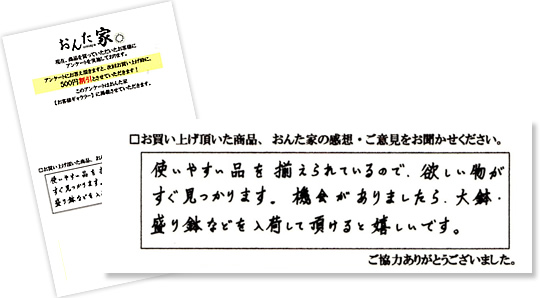 おんた家
現在、商品を買っていただいたお客様に
アンケートを実施しております。
アンケートにお答え頂きますと、次回お買い上げ時に、
500円割引とさせていただきます!
このアンケートはおんた家
【お客様ギャラリー】に掲載させていただきます。
□お買い上げ頂いた商品、お
使いやすい品を揃
すぐ見つかります。
盛り鉢などを入
□お買い上げ頂いた商品、おんた家の感想・ご意見をお聞かせください。
使いやすい品を揃えられているので、欲しい物が
すぐ見つかります。機会がありましたら、大鉢・
盛り鉢などを入荷して頂けると嬉しいです。
ご協力ありがとうございました。